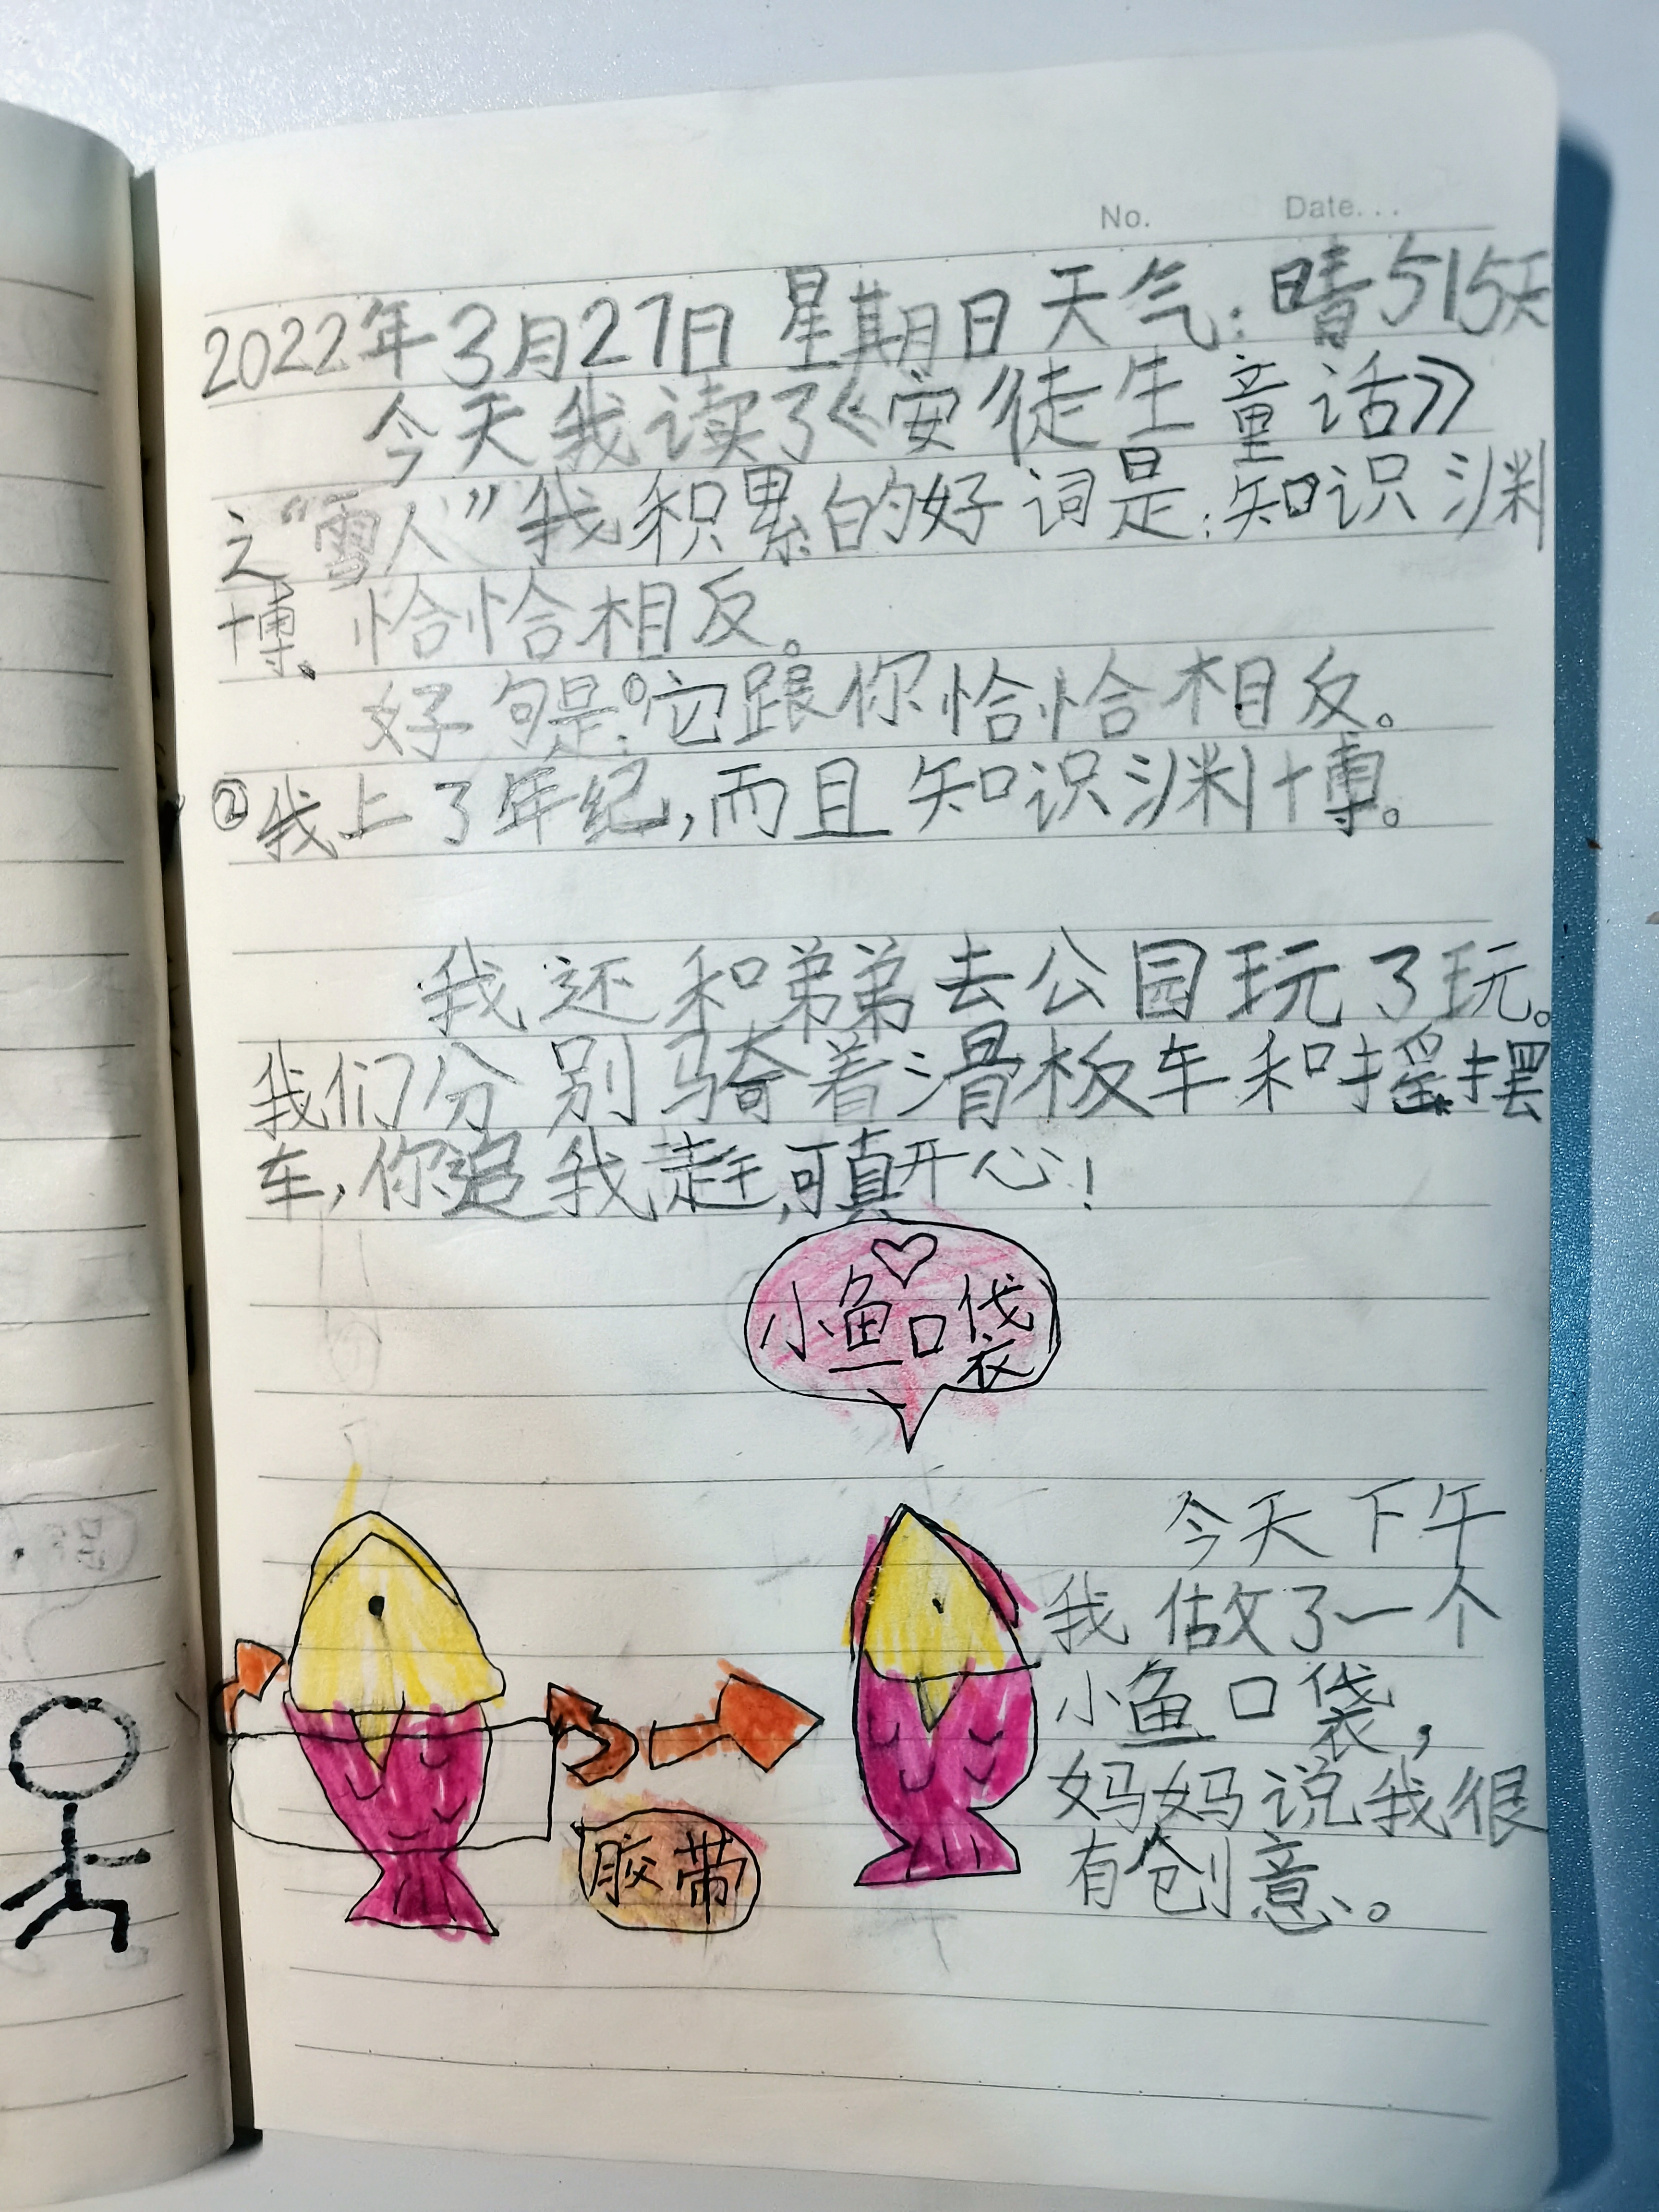 No. Date...
2022年3月27日 星期日 天气:晴 515天
今天我读了《安徒生童话》
之“雪人”我积累的好词是:知识渊
博、恰恰相反。
好句是:①它跟你恰恰相反。
②我上了年纪,而且知识渊博。
我还和弟弟去公园玩了玩。
我们分别骑着滑板车和摇摆
车,你追我赶,可真开心!
小鱼口袋
今天下午
我做了一个
小鱼口袋,
妈妈说我很
有创意。
胶带